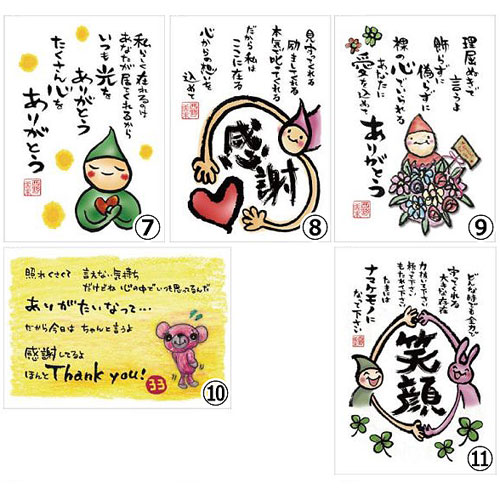 私らしく在れるのは
あなたが居てくれるから
いつも光を
ありがとう
たくさん心を
ありがとう
⑦
見守ってくれる
励ましてくれる
本気で叱ってくれる
だから私は
ここに在る
心からの想いを
込めて
感謝
⑧
理屈ぬきで
言うよ
飾らずに
偽らずに
裸の心でいられる
あなたに
愛を込めて
ありがとう
⑨
照れくさくて 言えない気持ち
だけどね 心の中でいつも思ってるんだ
ありがたいなって…
だから今日は ちゃんと言うよ
感謝してるよ
ほんと Thank you!
33
⑩
どんな時でも全力で
守ってくれる
大きな存在
力抜いて下さい
頼って下さい
もたれて下さい
たまには
ナマケモノに
なって下さい
笑顔
⑪